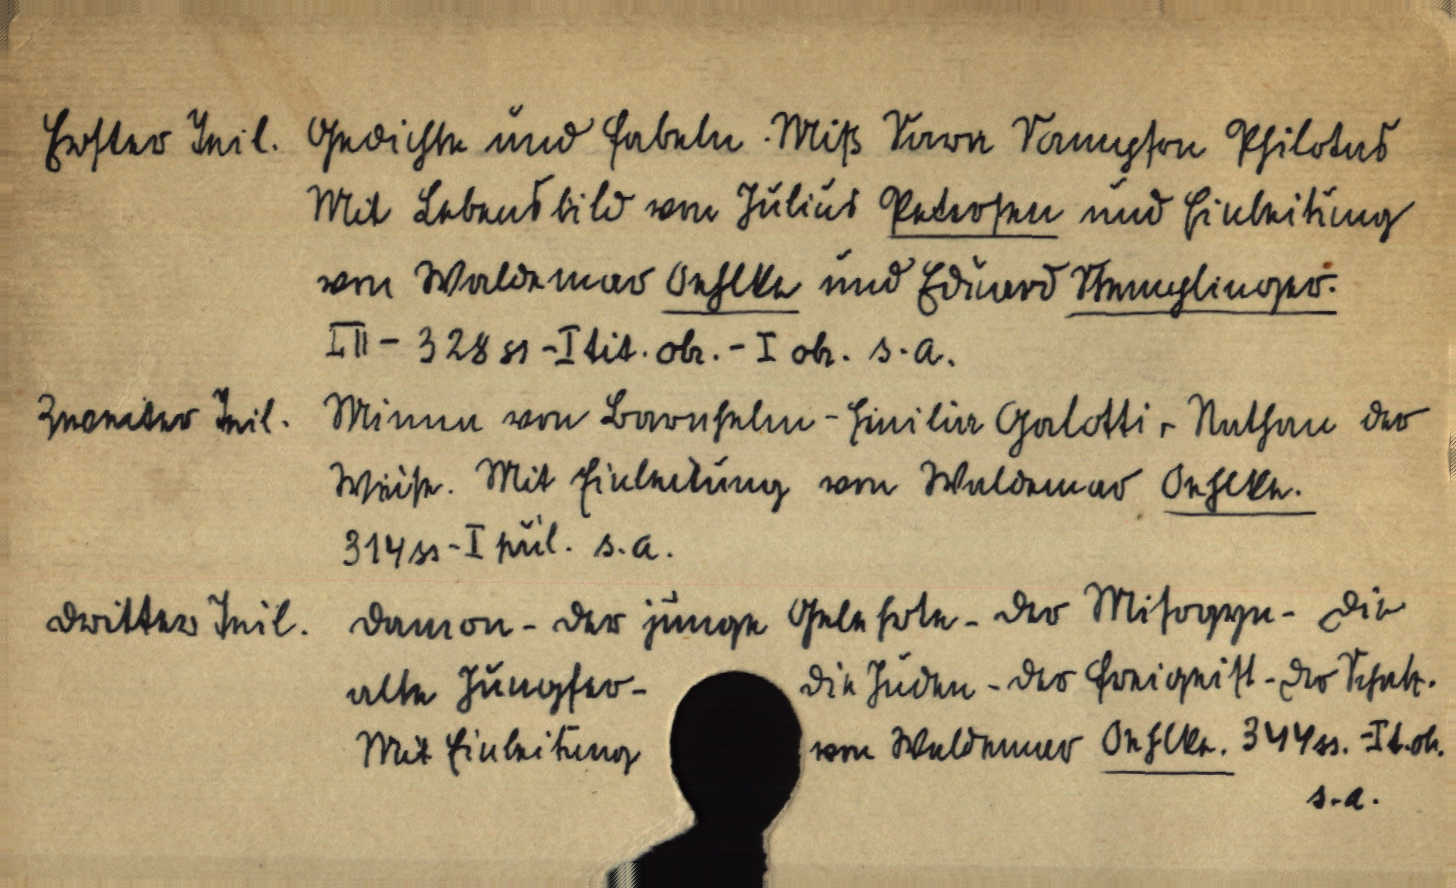 Erster Teil. Gedichte und Fabeln. Miß Sara Sampson Philotas
Mit Lebensbild von Julius Petersen und Einleitung
von Waldemar Oehlke und Eduard Stemplinger.
III - 328 ss - I tit. ob. - I ob. s.a.
Zweiter Teil. Minna von Barnhelm - Emilia Galotti - Nathan der
Weise. Mit Einleitung von Waldemar Oehlke.
314 ss - I púl. s.a.
Dritter Teil. Damon - Der junge Gelehrte - Der Misogyn - Die
alte Jungfer - Die Juden - Der Freigeist - Der Schatz.
Mit Einleitung von Waldemar Oehlke. 344 ss. - I t. ob.
s.a.